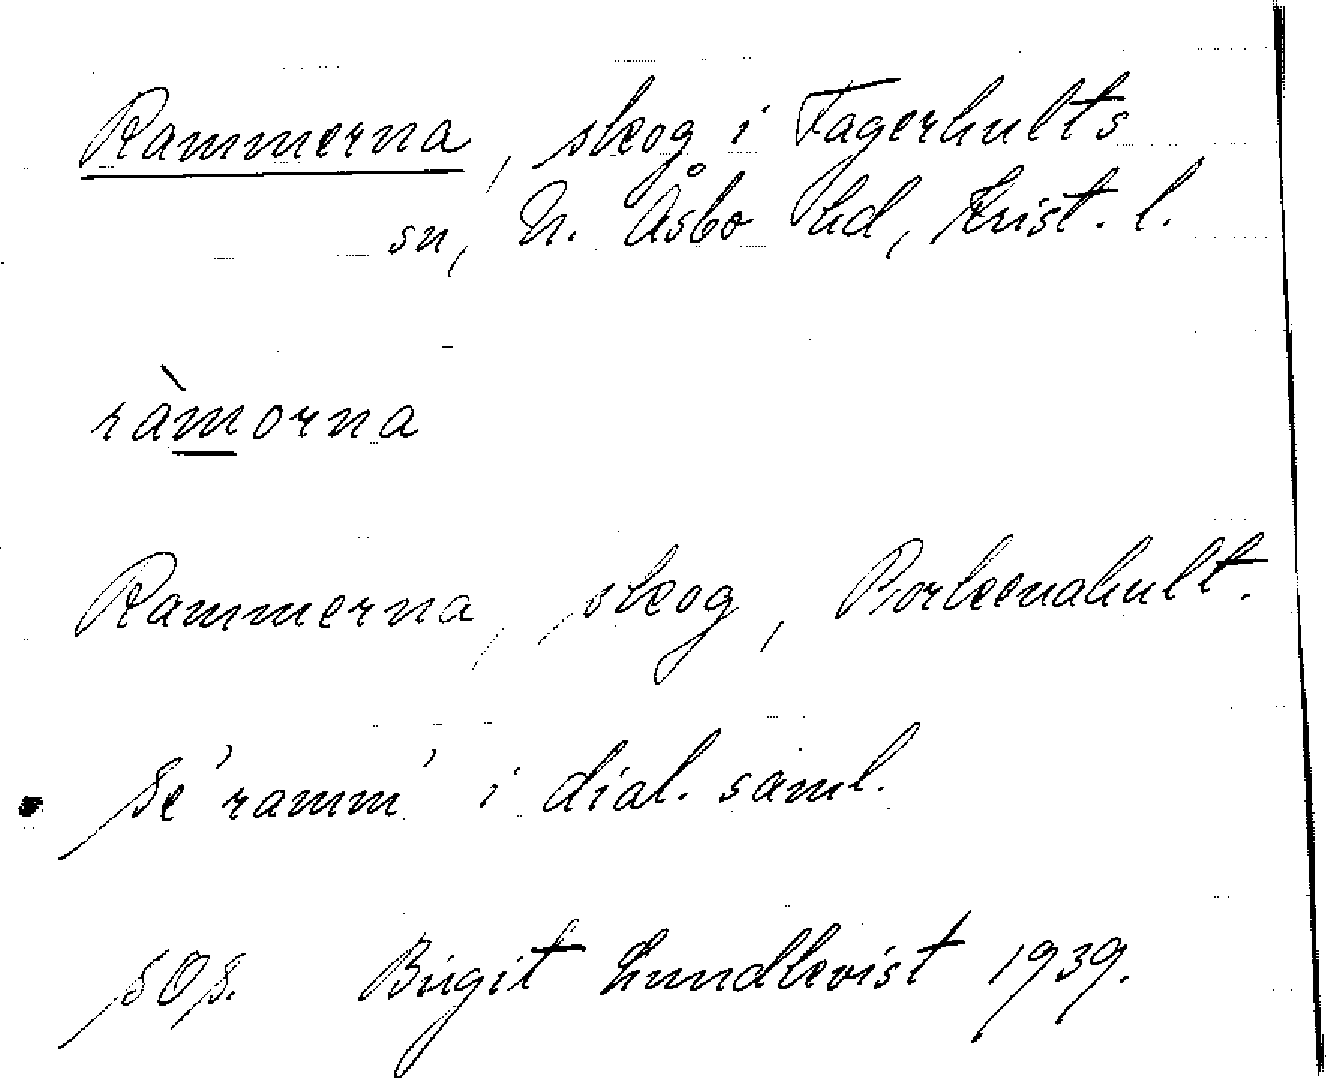 Rammerna, skog i Fagerhults
sn, N. Åsbo hd, Krist. l.
ràmorna
Rammerna, skog, Porkenahult.
Se 'ramm' i dial. saml.
SOS. Birgit Lundkvist 1939.